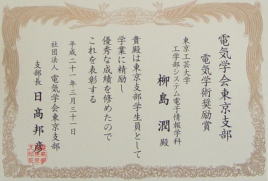 電気学会東京支部
電気学術奨励賞
東京工芸大学
工学部システム電子情報学科
柳島 潤 殿
貴殿は東京支部学生員として
学業に精励し
優秀な成績を修めたので
これを表彰する
平成二十一年三月三十一日
社団法人 電気学会東京支部
支部長 日髙邦彦